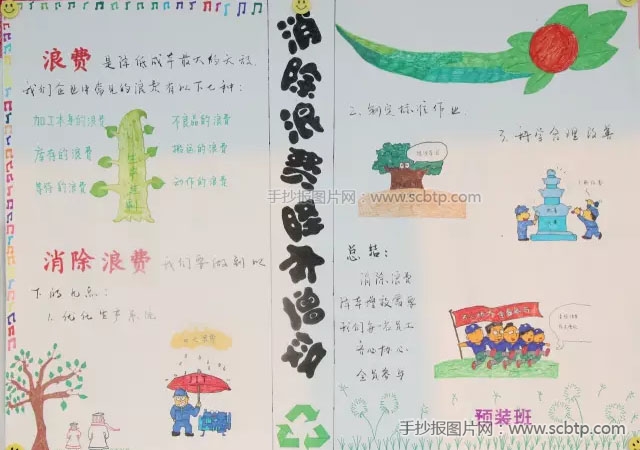 浪费 是降低成本最大的天敌
我们企业中常见的浪费有以下七种:
加工本身的浪费 不良品的浪费
库存的浪费 搬运的浪费
等待的浪费 动作的浪费
消除浪费 我们要做到以
下的九点:
1.优化生产系统
七大浪费
消除浪费降本增效
二.制定标准作业
3.科学合理改善
总结:
消除浪费
降本增效需要
我们每名员工
齐心协心
全员参与
预装班
手抄报图片网-www.scbtp.com
手抄报图片网-www.scbtp.com